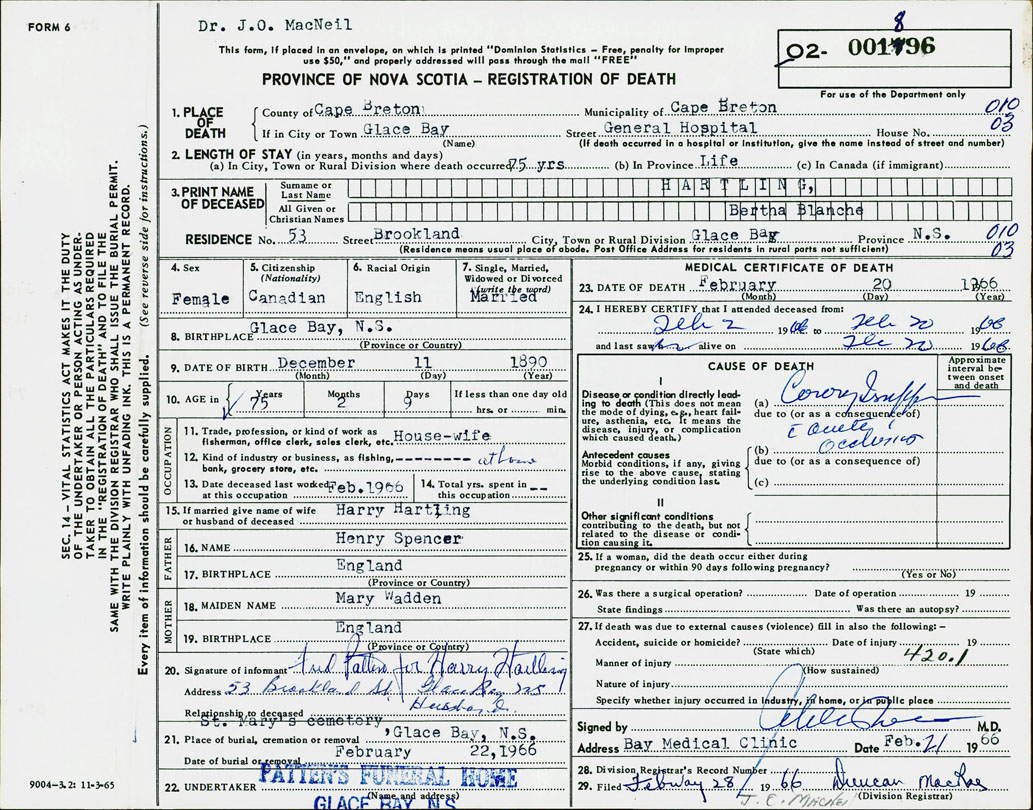 FORM 6
Dr. J.O. MacNeil
This form, if placed in an envelope, on which is printed "Dominion Statistics – Free, penalty for improper
use $50," and properly addressed will pass through the mail "FREE"
PROVINCE OF NOVA SCOTIA – REGISTRATION OF DEATH
8
02- 001796
For use of the Department only
1. PLACE OF DEATH
County of Cape Breton Municipality of Cape Breton 010
If in City or Town Glace Bay Street General Hospital House No. 03
(Name) (If death occurred in a hospital or institution, give the name instead of street and number)
2. LENGTH OF STAY (in years, months and days)
(a) In City, Town or Rural Division where death occurred 75 yrs (b) In Province Life (c) In Canada (if immigrant)
3. PRINT NAME OF DECEASED
Surname or Last Name HARTLING,
All Given or Christian Names Bertha Blanche
RESIDENCE No. 53 Street Brookland City, Town or Rural Division Glace Bay Province N.S. 010
(Residence means usual place of abode. Post Office Address for residents in rural parts not sufficient) 03
4. Sex
Female
5. Citizenship
(Nationality)
Canadian
6. Racial Origin
English
7. Single, Married,
Widowed or Divorced
(write the word)
Married
8. BIRTHPLACE Glace Bay, N.S.
(Province or Country)
9. DATE OF BIRTH December 11 1890
(Month) (Day) (Year)
10. AGE in Years Months Days If less than one day old
75 2 9 hrs. or min.
OCCUPATION
11. Trade, profession, or kind of work as
fisherman, office clerk, sales clerk, etc. House-wife
12. Kind of industry or business, as fishing, --------- at home
bank, grocery store, etc.
13. Date deceased last worked
at this occupation Feb.1966
14. Total yrs. spent in
this occupation --
15. If married give name of wife
or husband of deceased Harry Hartling
FATHER
16. NAME Henry Spencer
17. BIRTHPLACE England
(Province or Country)
MOTHER
18. MAIDEN NAME Mary Wadden
19. BIRTHPLACE England
(Province or Country)
20. Signature of informant Fred Patten for Harry Hartling
Address 53 Brookland St. Glace Bay N.S.
Relationship to deceased Husband
St. Mary's cemetery
21. Place of burial, cremation or removal , Glace Bay, N.S.
Date of burial or removal February 22,1966
PATTEN'S FUNERAL HOME
22. UNDERTAKER (Name and address)
GLACE BAY, N.S.
MEDICAL CERTIFICATE OF DEATH
23. DATE OF DEATH February 20 1966
(Month) (Day) (Year)
24. I HEREBY CERTIFY that I attended deceased from:
Feb 2 1966 to Feb 20 1966
and last saw her alive on Feb 20 1966
CAUSE OF DEATH
Approximate interval between onset and death
I
Disease or condition directly leading to death (This does not mean
the mode of dying, e.g., heart failure, asthenia, etc. It means the
disease, injury, or complication
which caused death.)
(a) Corory Insuff
due to (or as a consequence of)
Antecedent causes
Morbid conditions, if any, giving
rise to the above cause, stating
the underlying condition last.
(b) Occlusion
due to (or as a consequence of)
(c)
II
Other significant conditions
contributing to the death, but not
related to the disease or condition causing it.
25. If a woman, did the death occur either during
pregnancy or within 90 days following pregnancy?
(Yes or No)
26. Was there a surgical operation? Date of operation 19
State findings Was there an autopsy?
27. If death was due to external causes (violence) fill in also the following:–
Accident, suicide or homicide? Date of injury 19
(State which) 420.1
Manner of injury
(How sustained)
Nature of injury
Specify whether injury occurred in industry, in home, or in public place
Signed by M.D.
Address Bay Medical Clinic Date Feb. 21 1966
28. Division Registrar's Record Number
29. Filed February 28/ 1966 Duncan MacRae
(Division Registrar)
SEC. 14 – VITAL STATISTICS ACT MAKES IT THE DUTY
OF THE UNDERTAKER OR PERSON ACTING AS UNDER-
TAKER TO OBTAIN ALL THE PARTICULARS REQUIRED
IN THE "REGISTRATION OF DEATH" AND TO FILE THE
SAME WITH THE DIVISION REGISTRAR WHO SHALL ISSUE THE BURIAL PERMIT.
WRITE PLAINLY WITH UNFADING INK. THIS IS A PERMANENT RECORD.
Every item of information should be carefully supplied. (See reverse side for instructions.)
9004–3.2: 11-3-65